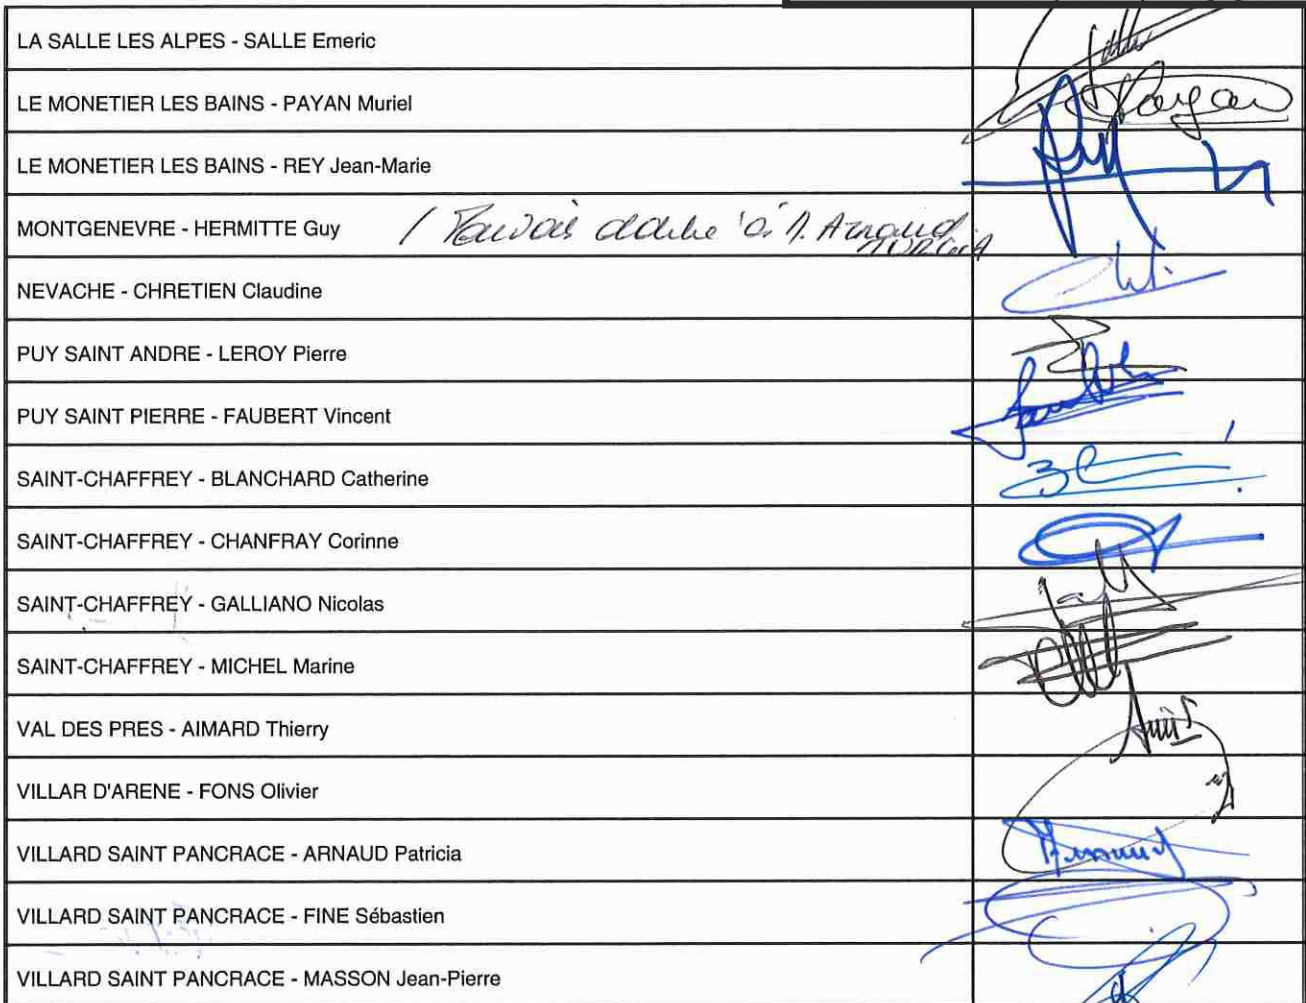 LA SALLE LES ALPES - SALLE Emeric
LE MONETIER LES BAINS - PAYAN Muriel
Payan
LE MONETIER LES BAINS - REY Jean-Marie
MONTGENEVRE - HERMITTE Guy / Pouvoir donné à M. Arnaud
MURGIA
NEVACHE - CHRETIEN Claudine
PUY SAINT ANDRE - LEROY Pierre
PUY SAINT PIERRE - FAUBERT Vincent
SAINT-CHAFFREY - BLANCHARD Catherine
SAINT-CHAFFREY - CHANFRAY Corinne
SAINT-CHAFFREY - GALLIANO Nicolas
SAINT-CHAFFREY - MICHEL Marine
VAL DES PRES - AIMARD Thierry
VILLAR D'ARENE - FONS Olivier
VILLARD SAINT PANCRACE - ARNAUD Patricia
Arnaud
VILLARD SAINT PANCRACE - FINE Sébastien
VILLARD SAINT PANCRACE - MASSON Jean-Pierre